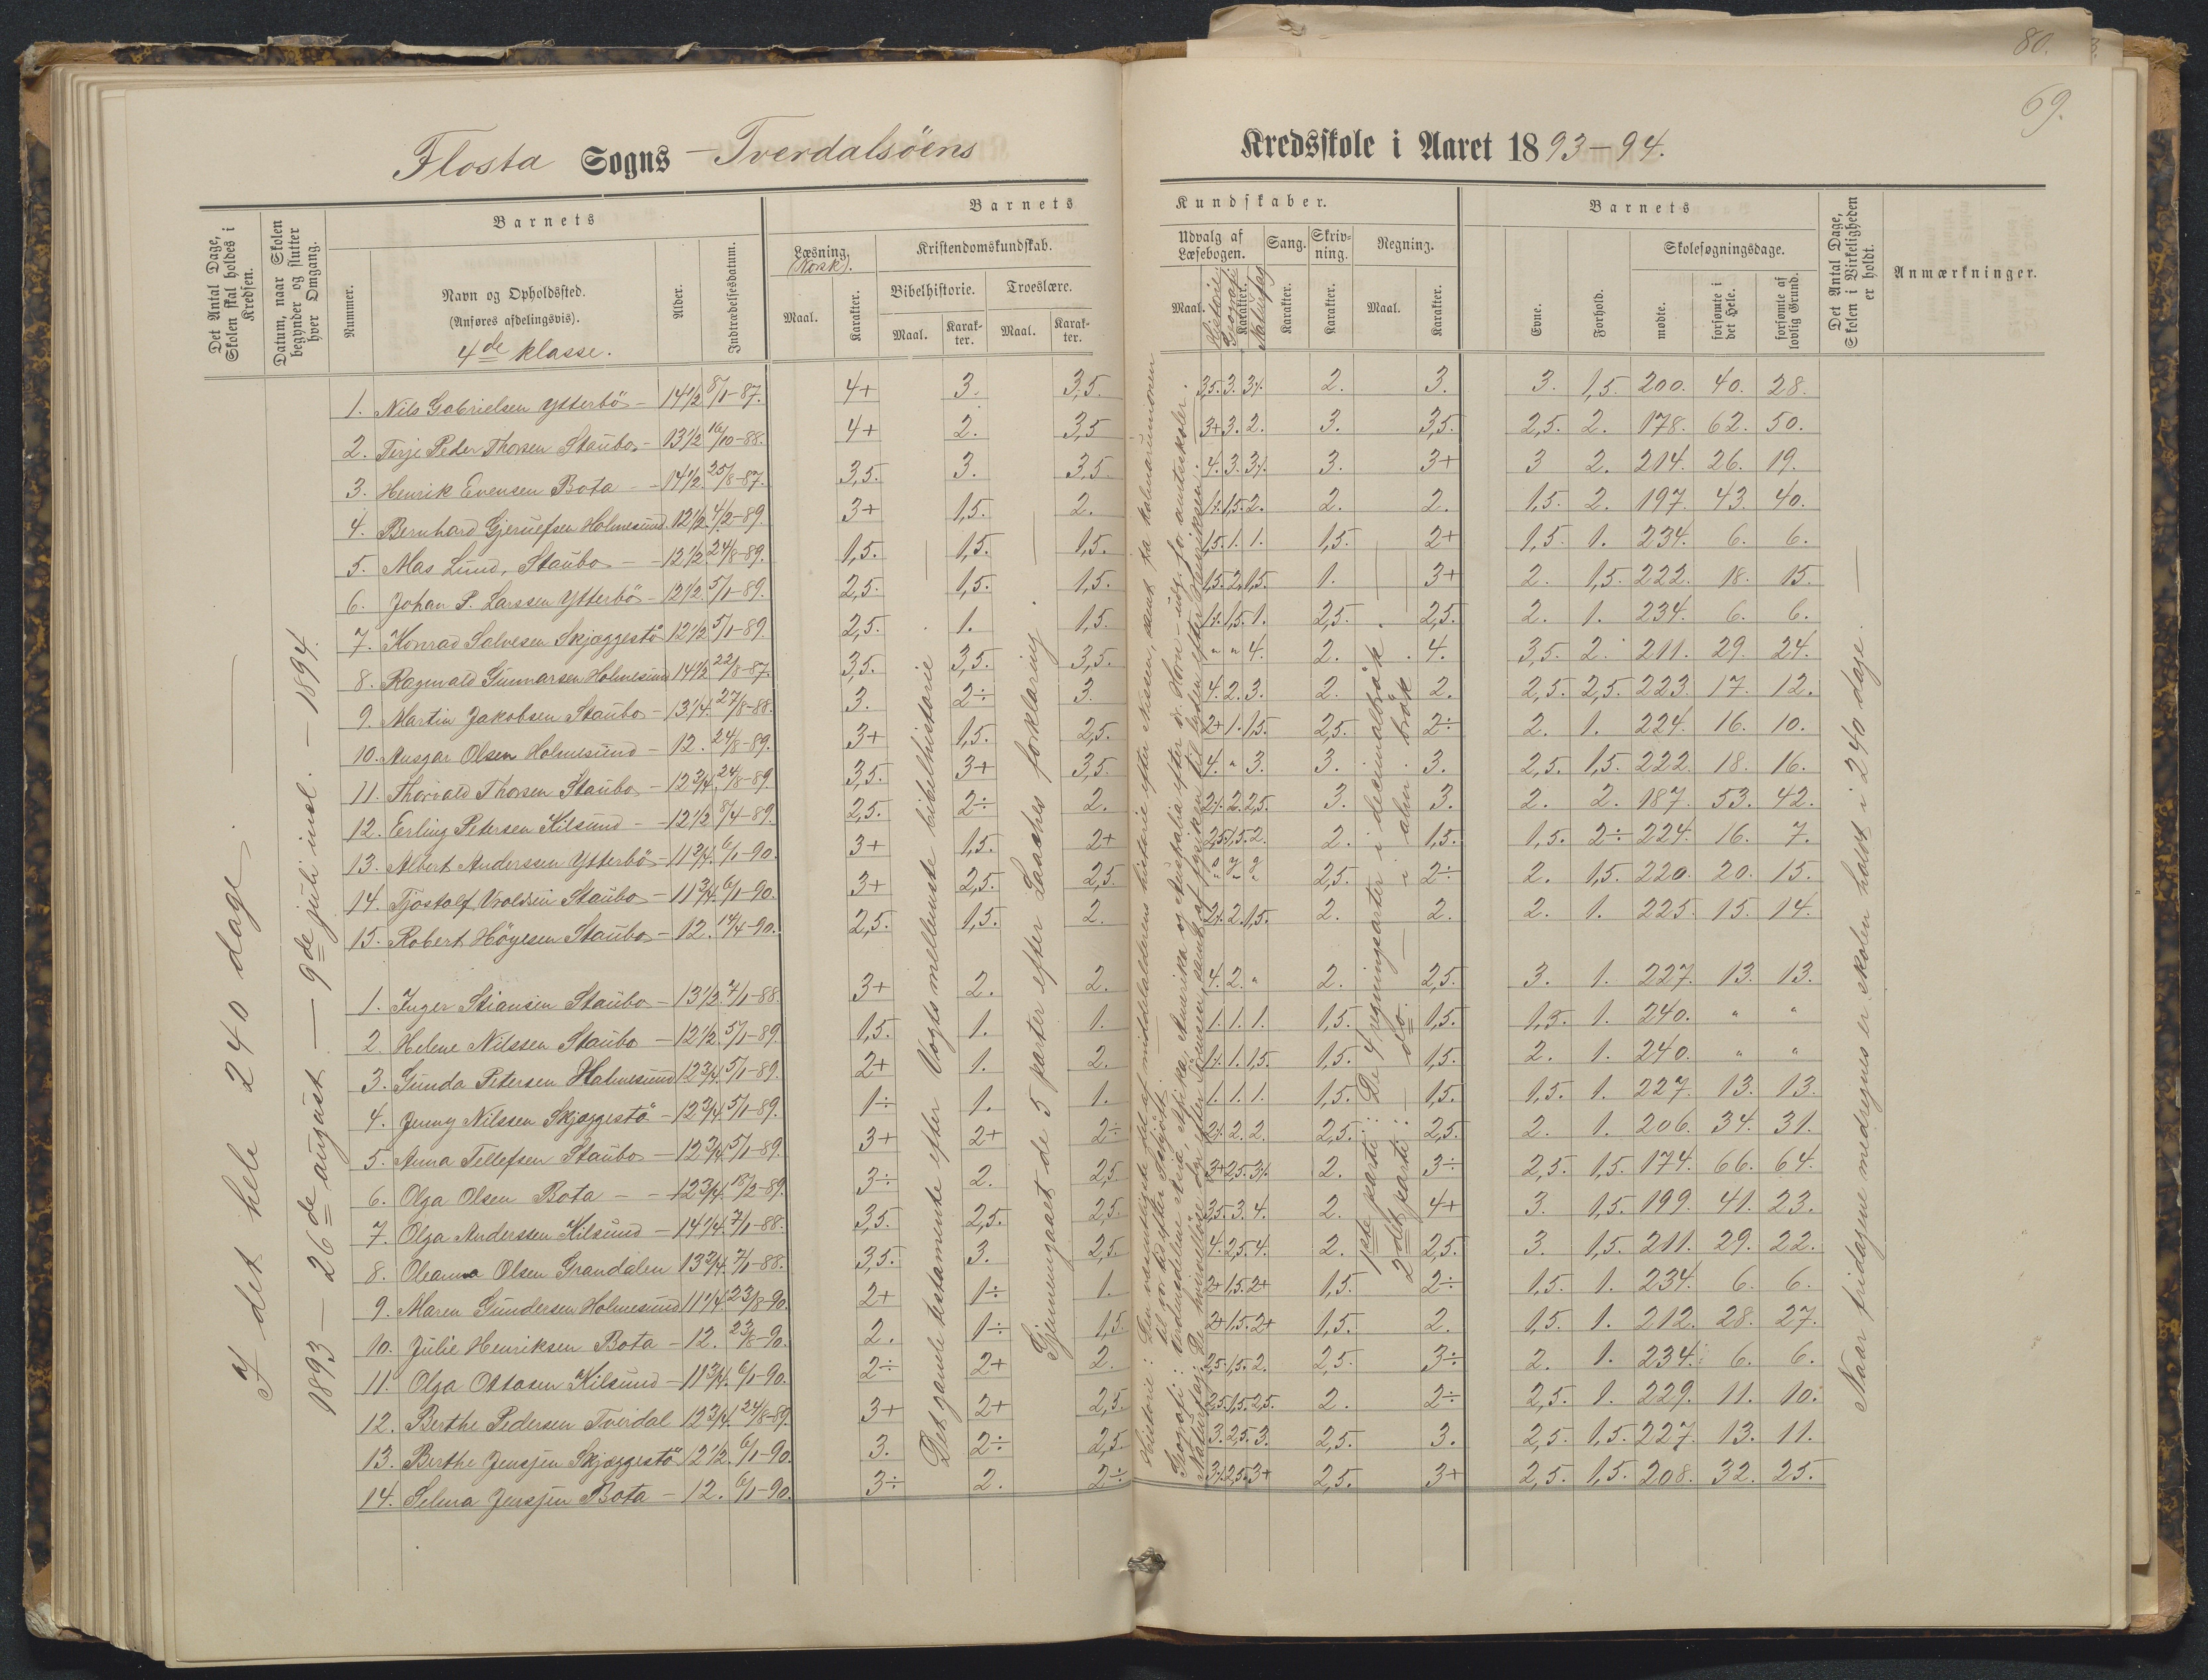 80.
69.
Flosta Sogns - Tverdalsöens Kredsskole i Aaret 1893-94.
Det Antal Dage, Skolen skal holdes i Kredsen.
Datum, naar Skolen begynder og slutter hver Omgang.
Barnets
Nummer.
Navn og Opholdssted.
(Anføres afdelingsvis).
4de klasse.
Alder.
Indtrædelsesdatum.
Barnets Kundskaber.
Læsning. (Norsk).
Maal.
Karakter.
Kristendomskundskab.
Bibelhistorie.
Maal.
Karakter.
Troeslære.
Maal.
Karakter.
Udvalg af Læsebogen.
Maal.
Historie
Geografi
Karakter.
Naturfag
Sang.
Karakter.
Skrivning.
Karakter.
Regning.
Maal.
Karakter.
Barnets
Evne.
Forhold.
Skolesøgningsdage.
mødte.
forsømte i det Hele.
forsømte af lovlig Grund.
Det Antal Dage, Skolen i Virkeligheden er holdt.
Anmærkninger.
I det hele 240 dage. —
1893 — 26de august — 9de juli incl. — 1894.
1. Nils Gabrielsen Ytterbö - 14 1/2 8/1-87. 4+ 3. 3,5. 3,5. 3. 3%. 2. 3. 3. 1,5. 200. 40. 28.
2. Terje Peder Thorsen Staubo - 13 1/2 16/10-88. 4+ 2. 3,5 3+ 3. 2. 3. 3,5. 2,5. 2. 178. 62. 50.
3. Henrik Evensen Bota - 14 1/2 25/8-87. 3,5. 3. 3,5 4. 3. 3%. 3. 3+ 3 2. 214. 26. 19.
4. Bernhard Gjeruefsen Holmesund 12 1/2 4/2-89. 3+ 1,5. 2. 1%. 1,5. 2. 2. 2. 1,5. 2. 197. 43. 40.
5. Mas Lund, Staubo - 12 1/2 24/8-89. 1,5. 1,5. 1,5. 1,5. 1. 1. 1,5. 2+ 1,5. 1. 234. 6. 6.
6. Johan P. Larssen Ytterbö - 12 1/2 5/1-89. 2,5. 1,5. 1,5. 1,5. 2. 1,5. 1. 3+ 2. 1,5. 222. 18. 15.
7. Konrad Salvesen Skjæggestö 12 1/2 5/1-89. 2,5. 1. 1,5. 1%. 1,5. 1. 2,5. 2,5. 2. 1. 234. 6. 6.
8. Ragnvald Gunnarsen Holmesund 14 1/2 22/8-87. 3,5. 3,5. 3,5. " " 4. 2. 4. 3,5. 2. 211. 29. 24.
9. Martin Jakobsen Staubo - 13 1/4 27/8-88. 3. 2÷ 3. 4. 2. 3. 2. 2. 2,5. 2,5. 223. 17. 12.
10. Ansgar Olsen Holmesund - 12. 24/8-89. 3+ 1,5. 2,5. 2+ 1. 1,5. 2,5. 2÷ 2. 1. 224. 16. 10.
11. Thorvald Thorsen Staubo - 12 3/4 24/8-89. 3,5. 3+ 3,5. 4. " 3. 3. 3. 2,5. 1,5. 222. 18. 16.
12. Erling Petersen Kilsund - 12 1/2 8/4-89. 2,5. 2÷ 2. 2%. 2. 2,5. 3. 3. 2. 2. 187. 53. 42.
13. Albert Anderssen Ytterbö - 11 3/4 6/1-90. 3+ 1,5. 2+ 2,5. 1,5. 2. 2. 1,5. 1,5. 2÷ 224. 16. 7.
14. Tjöstolf Vroldsen Staubo - 11 3/4 6/1-90. 3+ 2,5. 2,5. 2,5. 2÷ 2. 1,5. 220. 20. 15.
15. Robert Höyesen Staubo - 12. 14/4-90. 2,5. 1,5. 2. 2%. 2. 1,5. 2. 2. 2. 1. 225. 15. 14.
1. Inger Stiansen Staubo - 13 1/2 7/1-88. 3+ 2. 2. 4. 2. " 2. 2,5. 3. 1. 227. 13. 13.
2. Helene Nilssen Staubo - 12 1/2 5/1-89. 1,5. 1. 1. 1. 1. 1. 1,5. 1,5. 1,5. 1. 240. " "
3. Gunda Petersen Holmesund 12 3/4 5/1-89. 2+ 1. 2. 1%. 1. 1,5. 1,5. 1,5. 2. 1. 240. " "
4. Jenny Nilssen Skjæggestö - 12 3/4 5/1-89. 1÷ 1. 1. 1. 1. 1. 1,5. 1,5. 1,5. 1. 227. 13. 13.
5. Anna Tellefsen Staubo - 12 3/4 5/1-89. 3+ 2+ 2÷ 2%. 2. 2. 2,5. 2,5. 2. 1. 206. 34. 31.
6. Olga Olsen Bota - 12 3/4 18/2-89. 3÷ 2. 2,5 3+ 2,5. 3%. 2. 3÷ 2,5. 1,5. 174. 66. 64.
7. Olga Anderssen Kilsund - 14 1/4 7/1-88. 3,5. 2,5. 2,5. 3,5. 3. 4. 2. 4+ 3. 1,5. 199. 41. 23.
8. Oleanna Olsen Grandalen 13 3/4 7/1-88. 3,5. 3. 2,5 4. 2,5 4. 2. 2,5. 3. 1,5. 211. 29. 22.
9. Maren Gundersen Holmesund 11 1/4 23/8-90. 2+ 1÷ 1. 2+ 1,5. 2+ 1,5. 2÷ 1,5. 1. 234. 6. 6.
10. Julie Henriksen Bota - 12. 23/8-90. 2. 1÷ 1,5 2+ 1,5. 2+ 1,5. 2. 1,5. 1. 212. 28. 27.
11. Olga Ottosen Kilsund - 11 3/4 6/1-90. 2÷ 2+ 2. 2,5. 1,5. 2. 2,5. 3÷ 2. 1. 234. 6. 6.
12. Berthe Pedersen Tverdal 12 3/4 24/8-89. 3+ 2+ 2,5. 2,5. 1,5. 2,5. 2. 2÷ 2,5. 1. 229. 11. 10.
13. Berthe Jensen Skjæggestö 12 1/2 6/1-90. 3. 2÷ 2,5. 3. 2,5. 3. 2,5. 3. 2,5. 1,5. 227. 13. 11.
14. Selma Jensen Bota - 12. 6/1-90. 3÷ 2. 2÷ 3%. 2,5. 3+ 2,5. 3+ 2,5. 1,5. 208. 32. 25.
Det gamle testamente efter Vogts mellemste bibelhistorie
Gjennemgaaet de 5 parter efter Laaches forklaring.
Historie: Den væsentligste del af middelalderens historie efter Nissen, samt fra kalmarunionen til vor tid efter
Geografi: Verdensdelene Asia, Afrika, Amerika og Australia efter dr. Horn - udg. for amterskoler.
Naturfag: De hvirvelløse dyr efter Sörensen, samt af fysiken til lyden efter Henriksen.
1ste parti: De 4 regningsarter i decimalbrök
2det parti: — do — i alm brök
Naar fridagene medregnes er skolen holdt i 240 dage. —